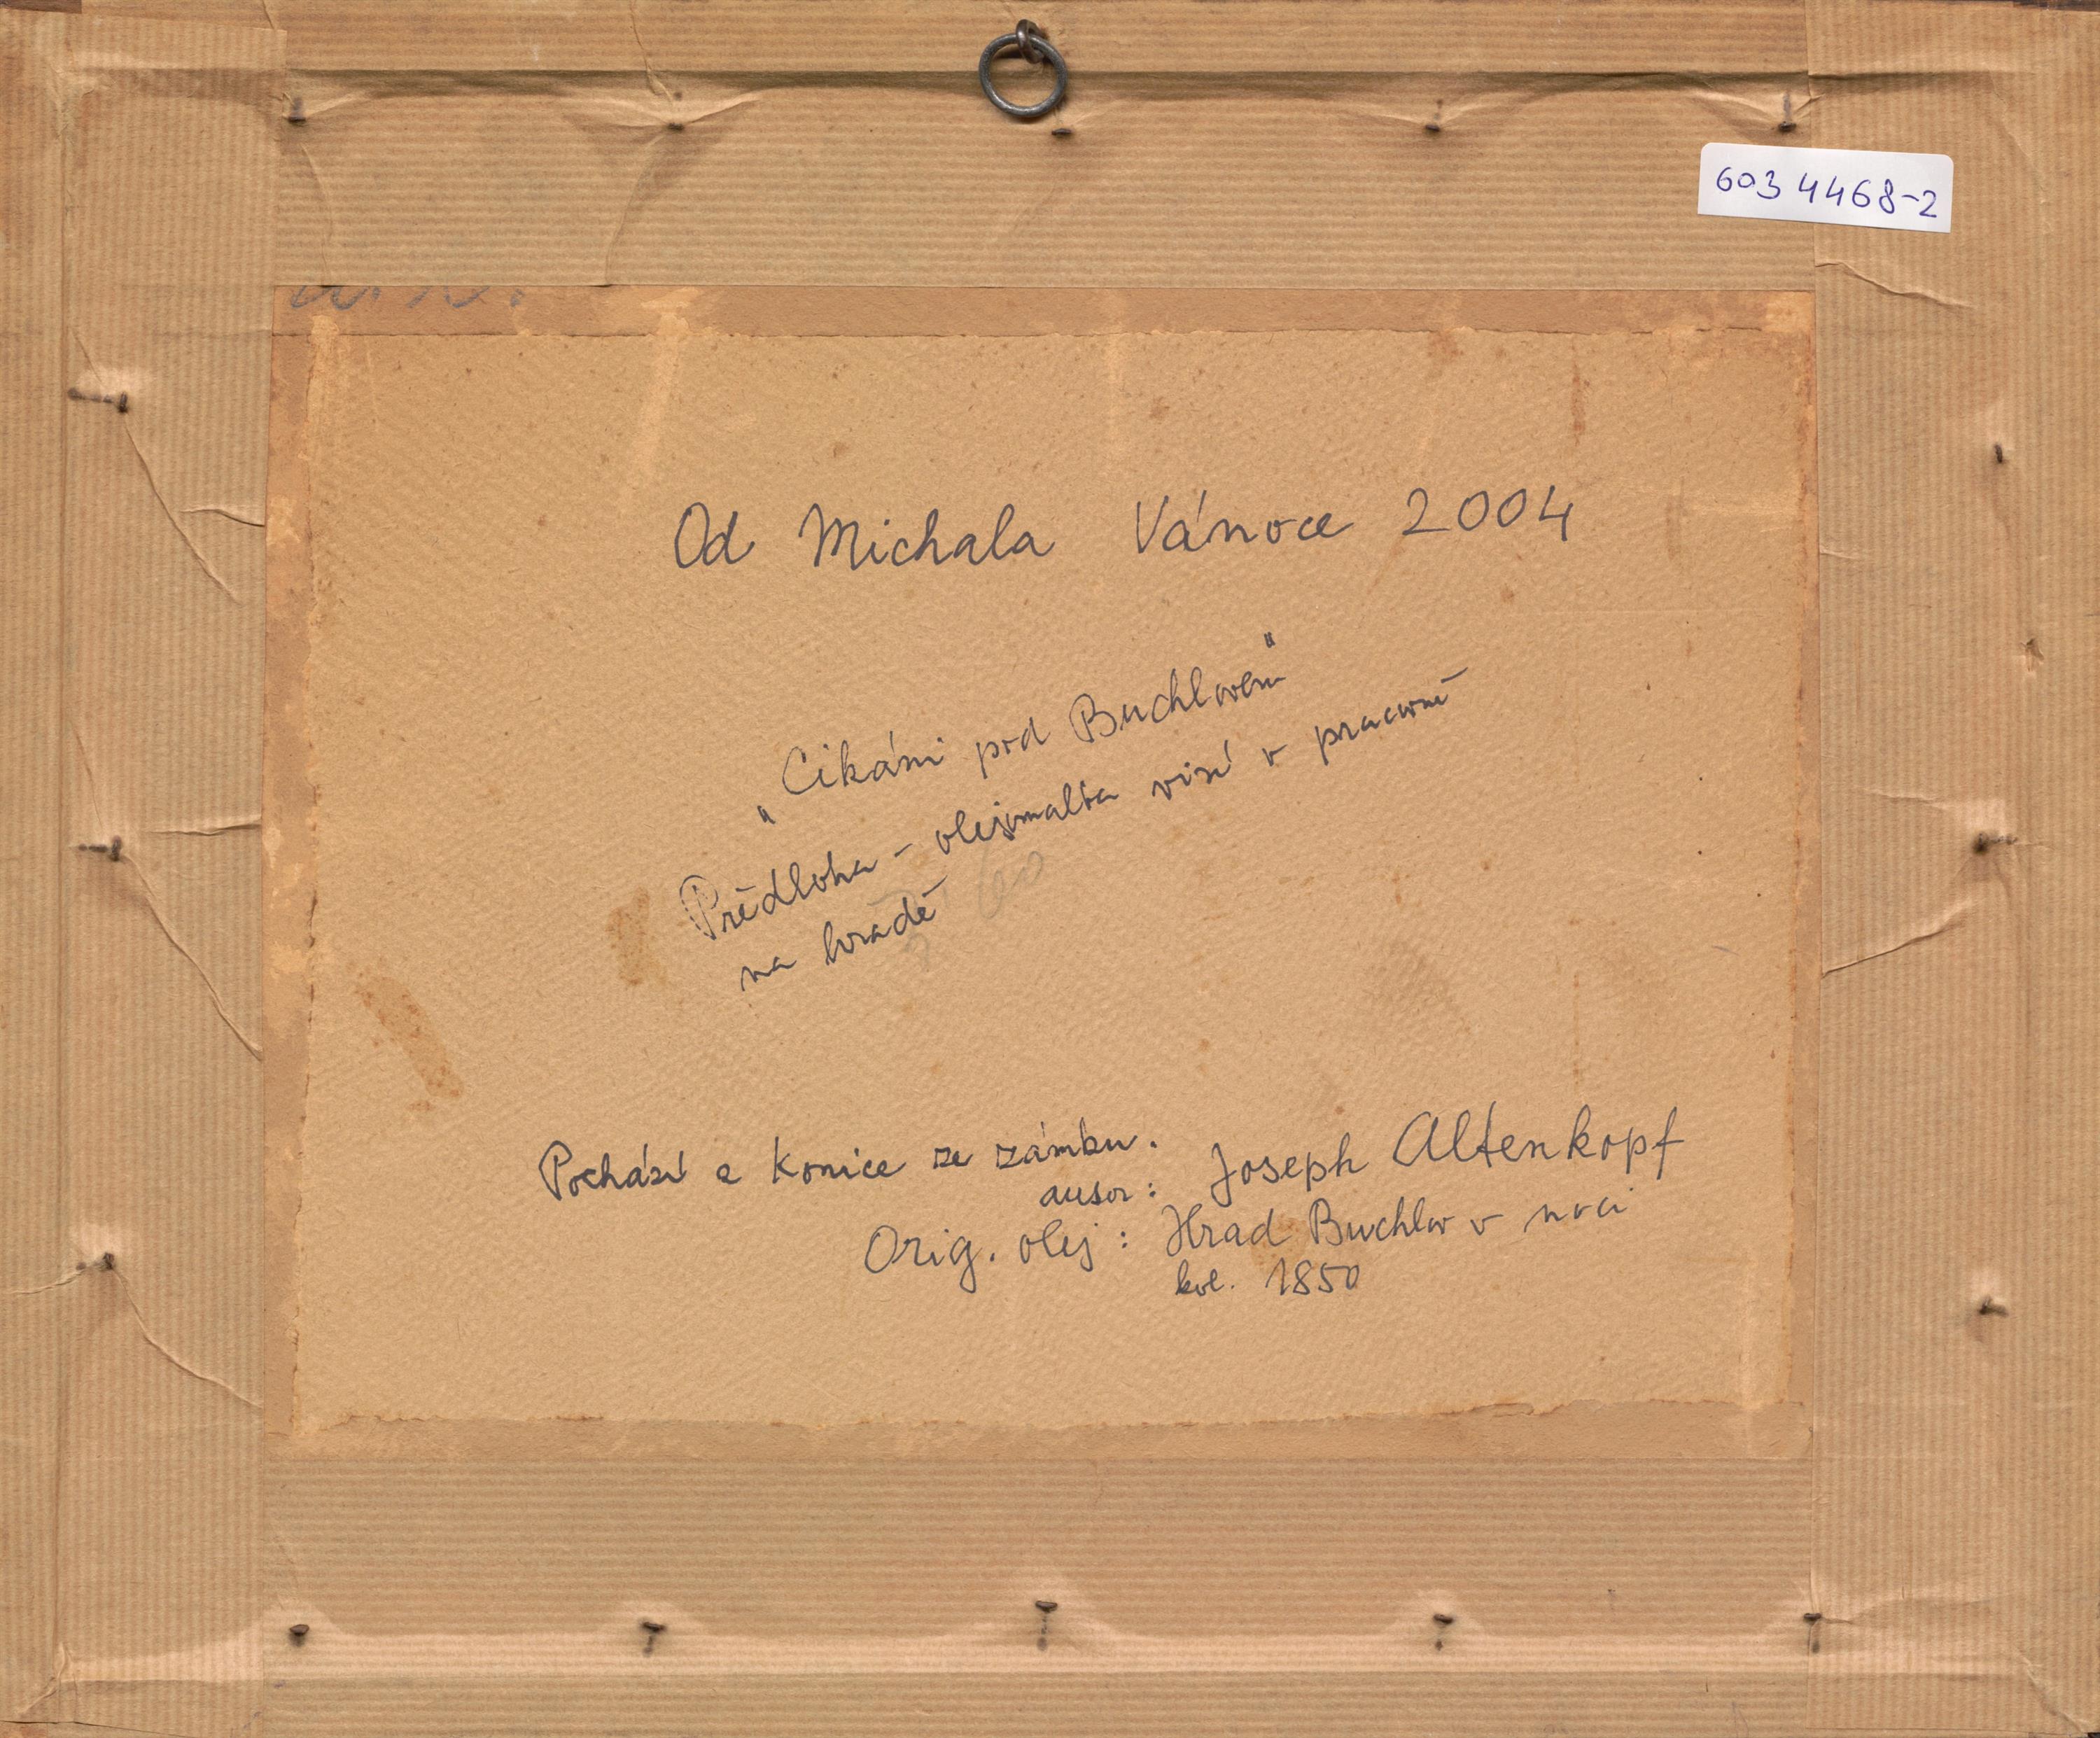 603 4468-2
Od Michala Vánoce 2004
"Cikáni pod Buchlovem"
Předloha - olejomalba visí v pracovně
na hradě
Pochází z Konice ze zámku.
autor: Joseph Altenkopf
Orig. olej: Hrad Buchlov v noci
kol. 1850